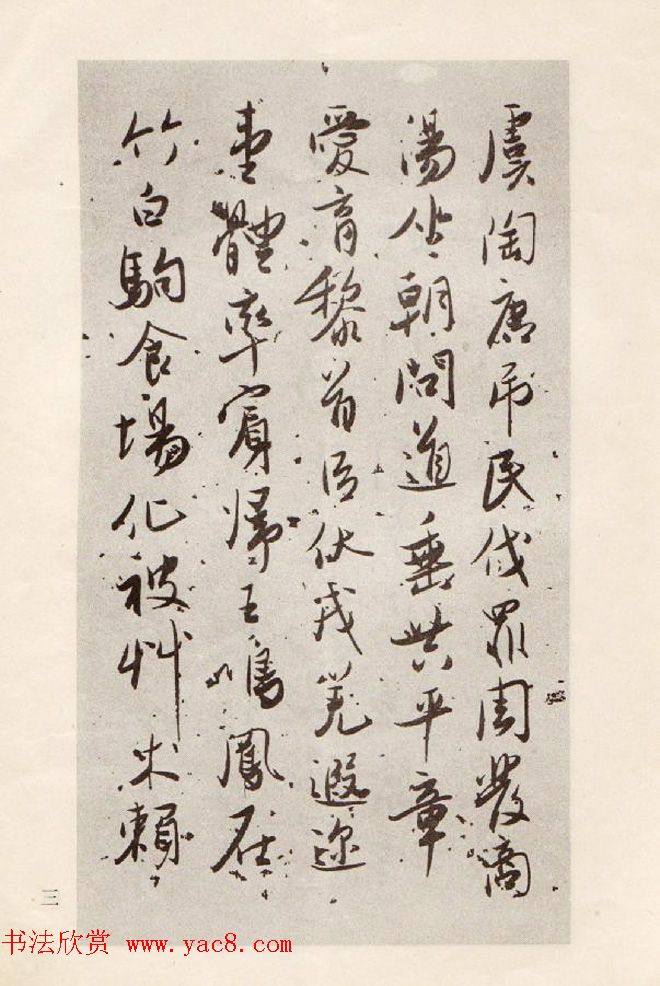 虞陶唐吊民伐罪周發商
湯坐朝問道垂共平章
愛育黎首臣伏戎羌遐迩
壹體率賓歸王鳴鳳在
竹白駒食場化被艸木賴
三
书法欣赏 www.yac8.com